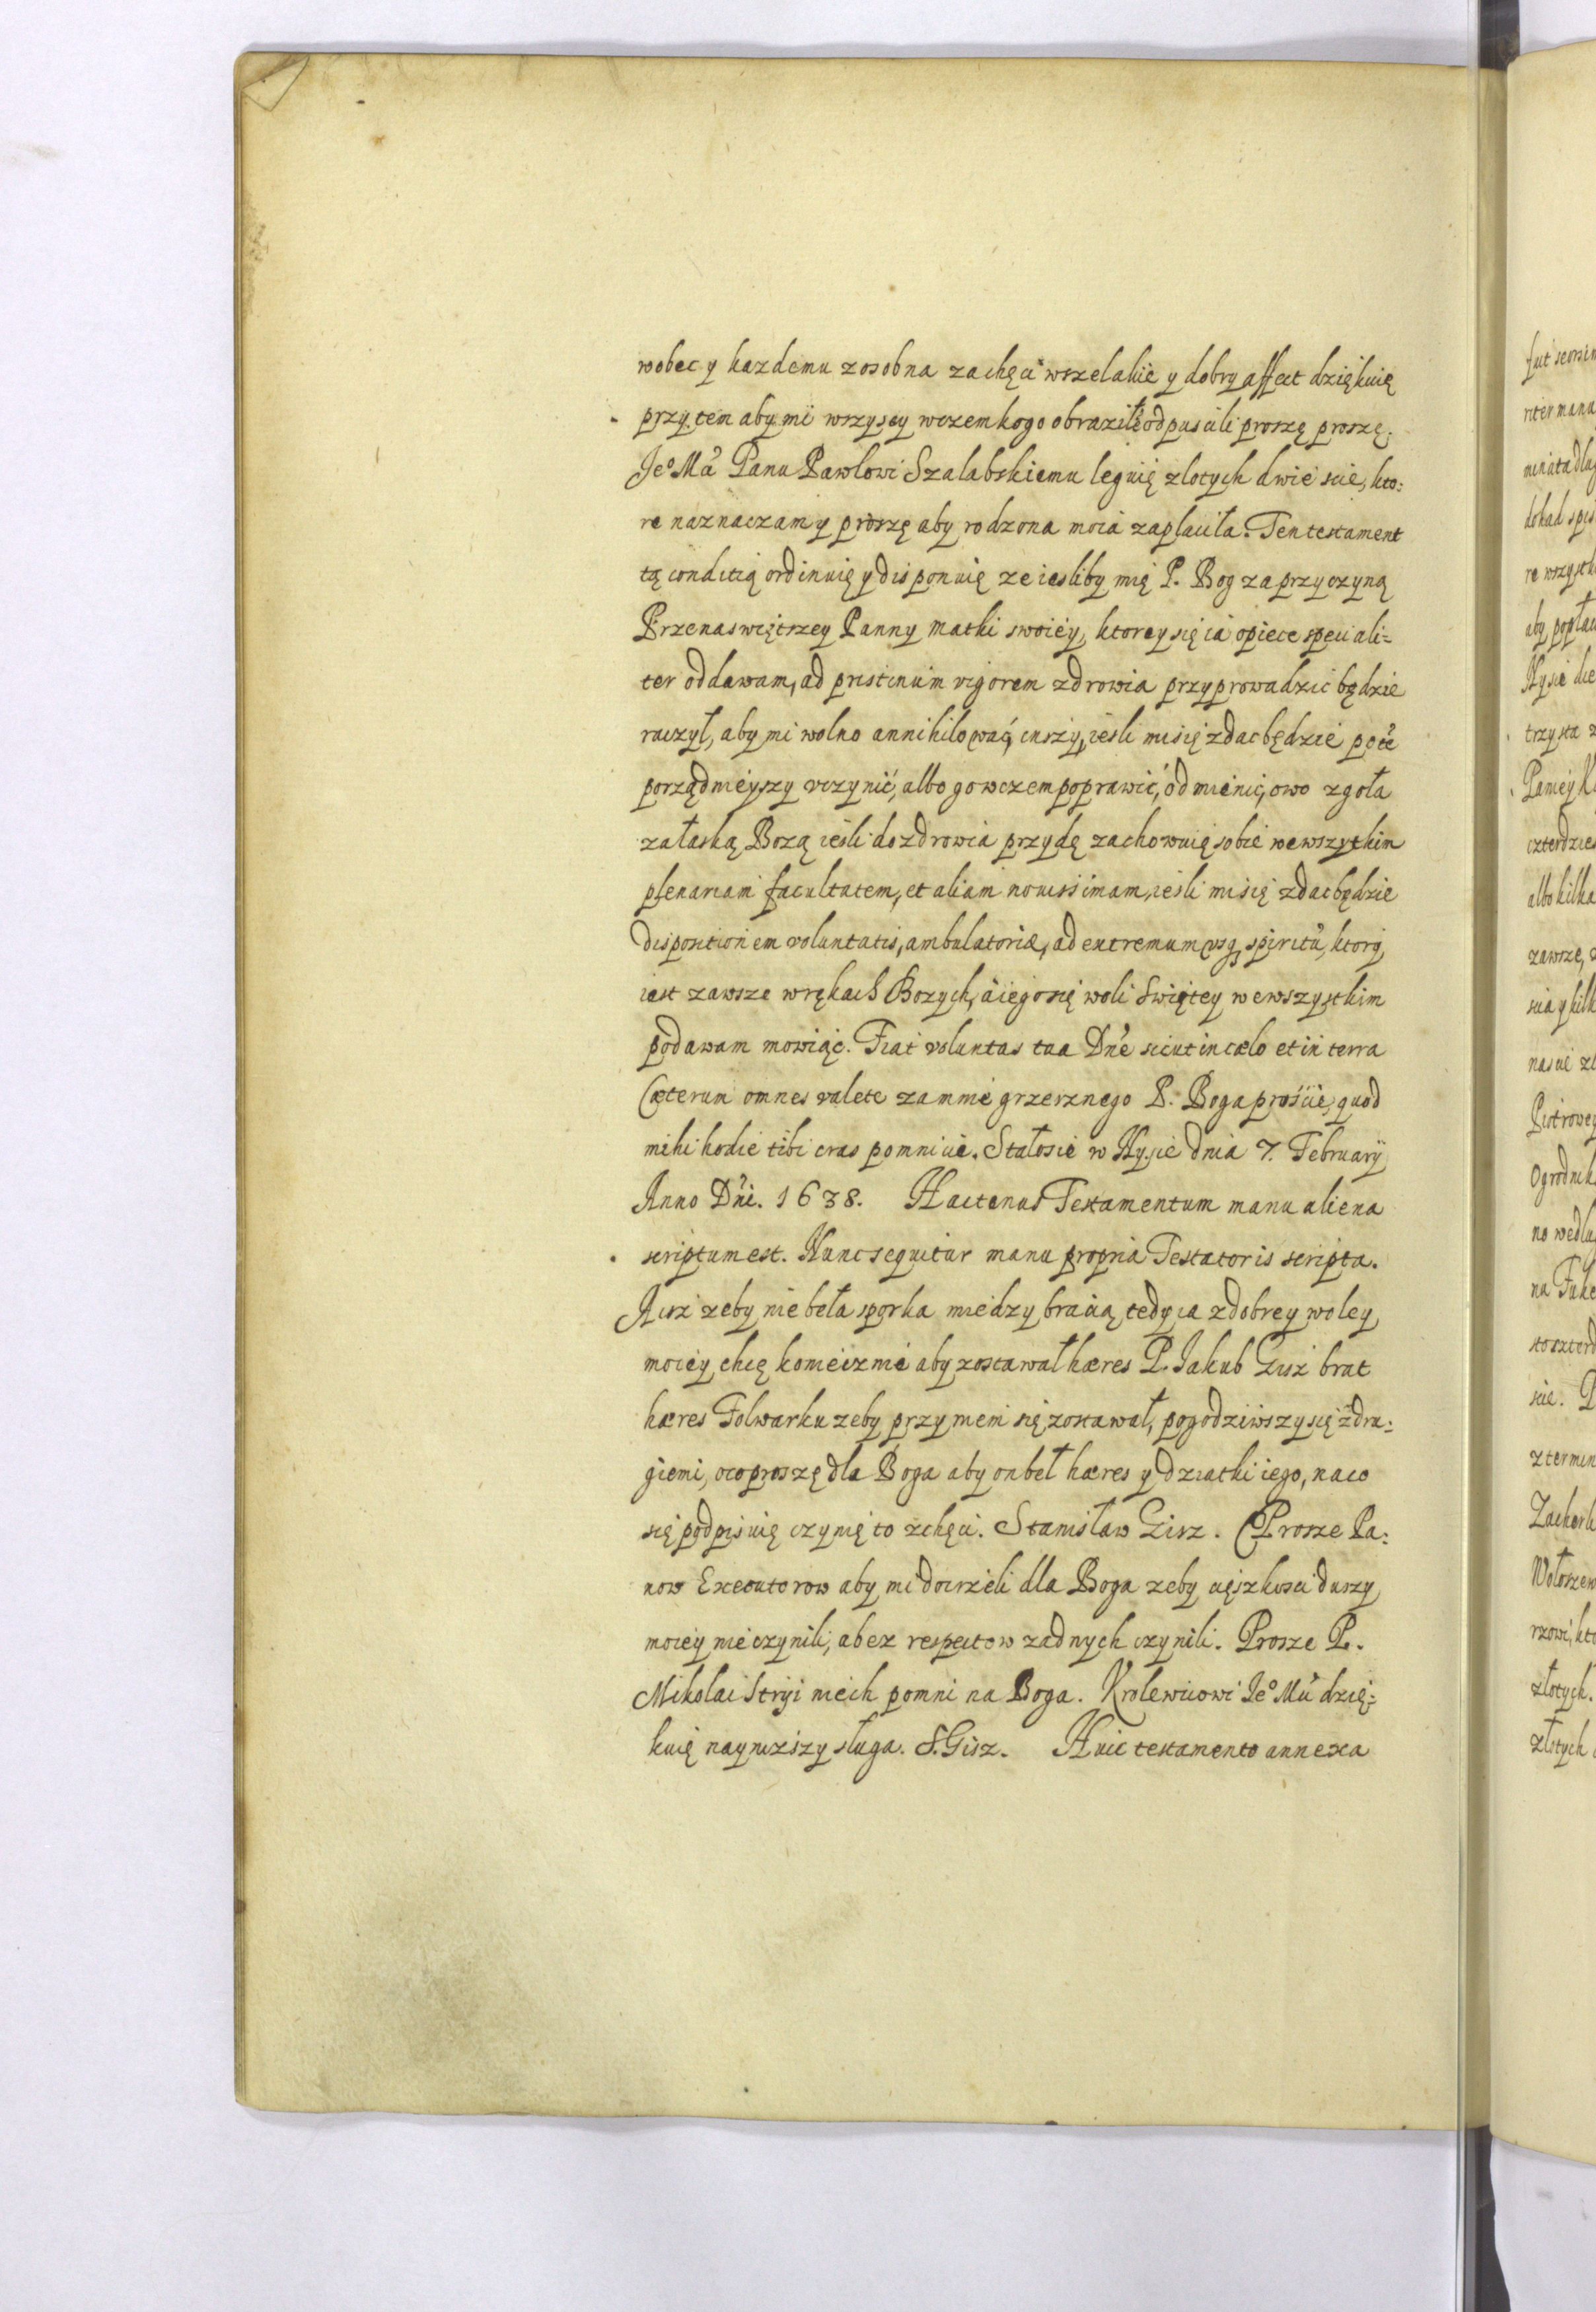 wobec y kazdemu zosobna zachęci wszelakie y dobry affect dziękuię
przytem aby mi wszyscy wczemkogo obraził odpuscili proszę proszę.
Jeº Mci Panu Pawłowi Szalabskiemu leguię zlotych dwie scie, kto:
re naznaczam y proszę aby rodzona moia zaplaciła. Ten testament
tą conditią ordinuię y disponuię ze iesliby mię P. Bog za przyczyną
Przenaswiętszey Panny Matki swoiey, ktorey się ia opiece speciali=
ter oddawam, ad pristinum vigorem zdrowia przyprowadzic będzie
raczył, aby mi wolno annihilować, inszy, iesli mi się zdac będzie
porządnieyszy vczynić, albo go wczem poprawić, odmienic, owo zgoła
załaską Bozą iesli do zdrowia przydę zachowuię sobie wewszytkim
plenariam facultatem, et aliam nouissimam, iesli mi się zdac będzie
dispositionem voluntatis, ambulatoriæ, ad extremum vsq spiritu, ktory
iest zawsze wrękach Bozych, a iego się woli Swiętey wewszystkim
podawam mowiąc. Fiat voluntas tua Dne sicut in cælo et in terra
Cæterum omnes valete zamnie grzesznego P. Boga proście, quod
mihi hodie tibi cras pomnicie. Stałosie w Nysie dnia 7. February
Anno Dni. 1638. Hactenus Testamentum manu aliena
scriptum est. Nunc sequitur manu propria Testatoris scripta.
Acisz zeby nie beła sporka miedzy bracią, tedy ia zdobrey woley
moiey chcę koniecznie aby zostawał hæres P. Jakub Gisz brat
hæres Folwarku zeby przy niem się zostawał, pogodziwszy się zdru:
giemi, oco proszę dla Boga aby on beł hæres y dziatki iego, naco
się podpisuię czynię to zchęci. Stanisław Gisz. Prosze Pa:
now Executorow aby mi dotrzieli dla Boga zeby cięszkosci duszy
moiey nie czynili, abez respectow zadnych czynili. Prosze P.
Mikolai Stryi niech pomni na Boga. Krolewicowi Jeº Mci dzię:
kuię naynizszy sługa. S. Gisz. Huic testamento annexa